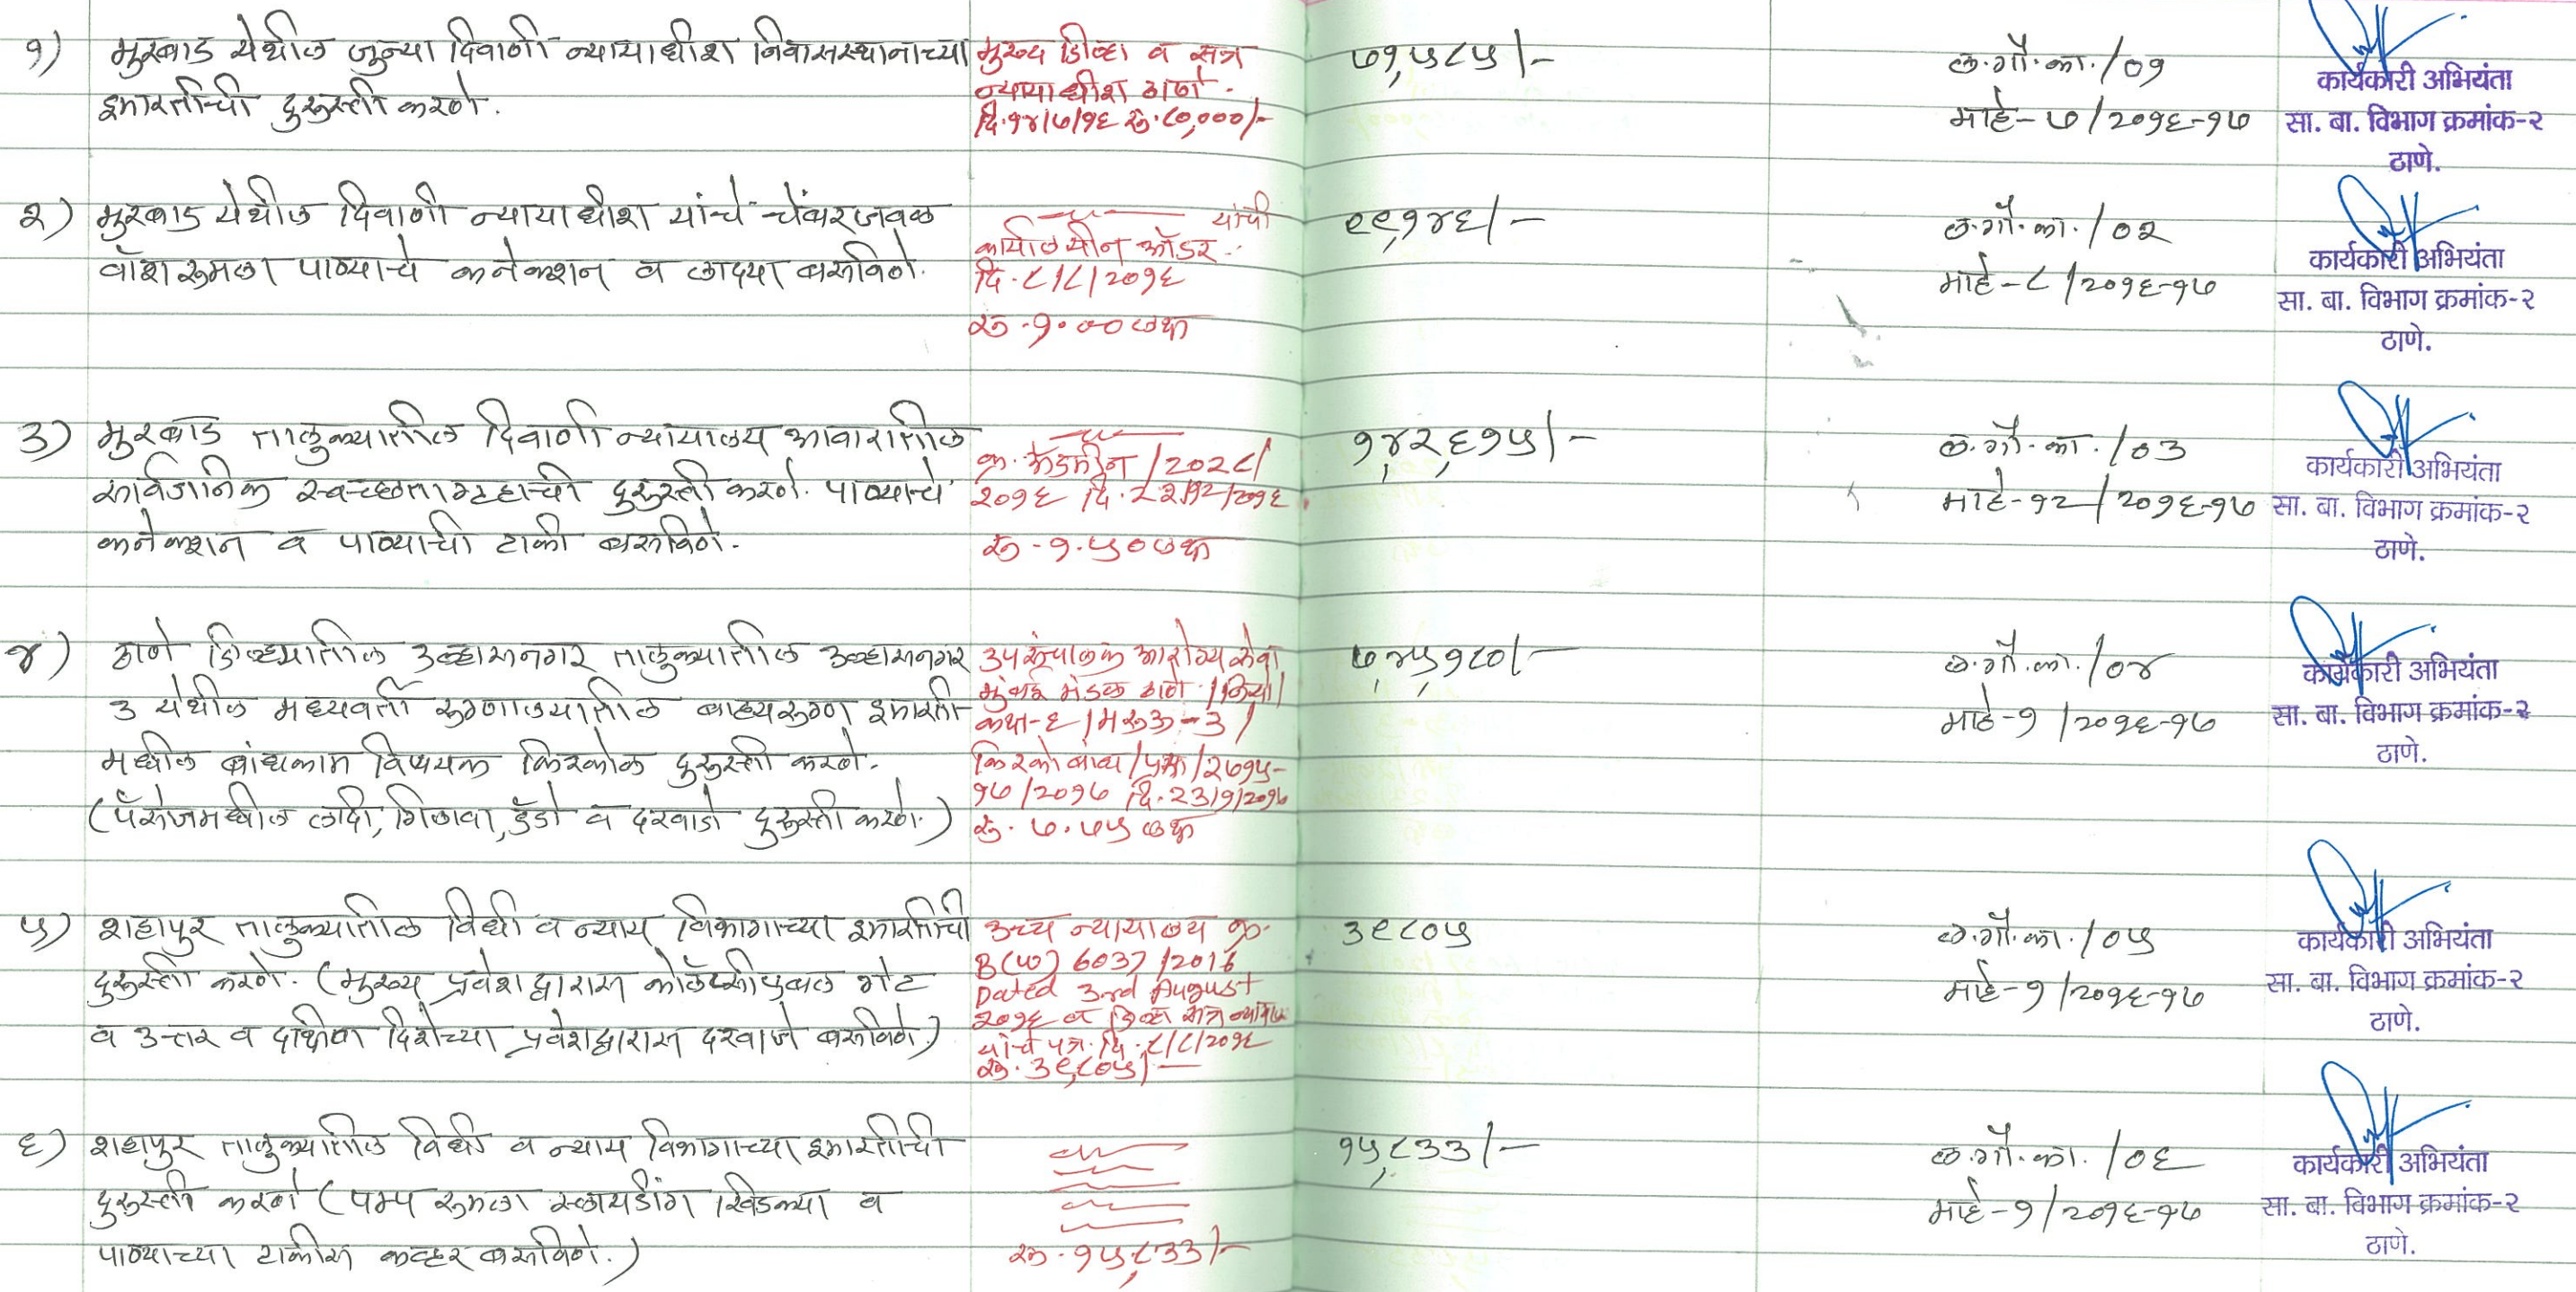 १) मुरबाड येथील जुन्या दिवाणी न्यायाधीश निवासस्थानाच्या
इमारतीची दुरुस्ती करणे.
मुख्य जिल्हा व सत्र
न्यायाधीश ठाणे.
दि.१४/७/१६ रु.८०,०००/-
७१,५८५/-
ल.गौ.का./०१
माहे-७/२०१६-१७
कार्यकारी अभियंता
सा. बा. विभाग क्रमांक-२
ठाणे.
२) मुरबाड येथील दिवाणी न्यायाधीश यांचे चेंबरजवळ
वॉशरुमला पाण्याचे कनेक्शन व लाद्या बसविणे.
—〃— यांची
कार्यालयीन ऑर्डर
दि.८/८/२०१६
रु.१.००लक्ष
९९,१४६/-
ल.गौ.का./०२
माहे-८/२०१६-१७
कार्यकारी अभियंता
सा. बा. विभाग क्रमांक-२
ठाणे.
३) मुरबाड तालुक्यातील दिवाणी न्यायालय आवारातील
सार्वजनिक स्वच्छतागृहाची दुरुस्ती करणे. पाण्याचे
कनेक्शन व पाण्याची टाकी बसविणे.
—〃—
क्र.अॅडमीन/२०२८/
२०१६ दि.२२/१२/२०१६
रु.१.५०लक्ष
१,४२,६१५/-
ल.गौ.का./०३
माहे-१२/२०१६-१७
कार्यकारी अभियंता
सा. बा. विभाग क्रमांक-२
ठाणे.
४) ठाणे जिल्ह्यातील उल्हासनगर तालुक्यातील उल्हासनगर
३ येथील मध्यवर्ती रुग्णालयातील बाह्यरुग्ण इमारती
मधील बांधकाम विषयक किरकोळ दुरुस्ती करणे.
(पॅसेजमधील लादी, गिलावा, डॅडो व दरवाजे दुरुस्ती करणे.)
उपसंचालक आरोग्य सेवा
मुंबई मंडळ ठाणे
कक्ष-६/मरुउ-३/
किरकोबांध/प्रमा/२७१५-
१७/२०१७ दि.२३/१/२०१७
रु.७.७५ लक्ष
७,४५,१८०/-
ल.गौ.का./०४
माहे-१/२०१६-१७
कार्यकारी अभियंता
सा. बा. विभाग क्रमांक-२
ठाणे.
५) शहापुर तालुक्यातील विधी व न्याय विभागाच्या इमारतीची
दुरुस्ती करणे. (मुख्य प्रवेशद्वारास कोलॅप्सीपुबल गेट
व उत्तर व दक्षिण दिशेच्या प्रवेशद्वारास दरवाजे बसविणे.)
उच्च न्यायालय क्र.
B(W) 6037/2016
Dated 3rd August
२०१६ व जिल्हा सत्र
यांचे पत्र.दि.८/८/२०१६
रु.३९,८०५/—
३९८०५
ल.गौ.का./०५
माहे-१/२०१६-१७
कार्यकारी अभियंता
सा. बा. विभाग क्रमांक-२
ठाणे.
६) शहापुर तालुक्यातील विधी व न्याय विभागाच्या इमारतीची
दुरुस्ती करणे (पम्प रुमला स्लायडींग खिडक्या व
पाण्याच्या टाकीस कव्हर बसविणे.)
रु.१५,८३३/-
१५,८३३/-
ल.गौ.का./०६
माहे-१/२०१६-१७
कार्यकारी अभियंता
सा. बा. विभाग क्रमांक-२
ठाणे.